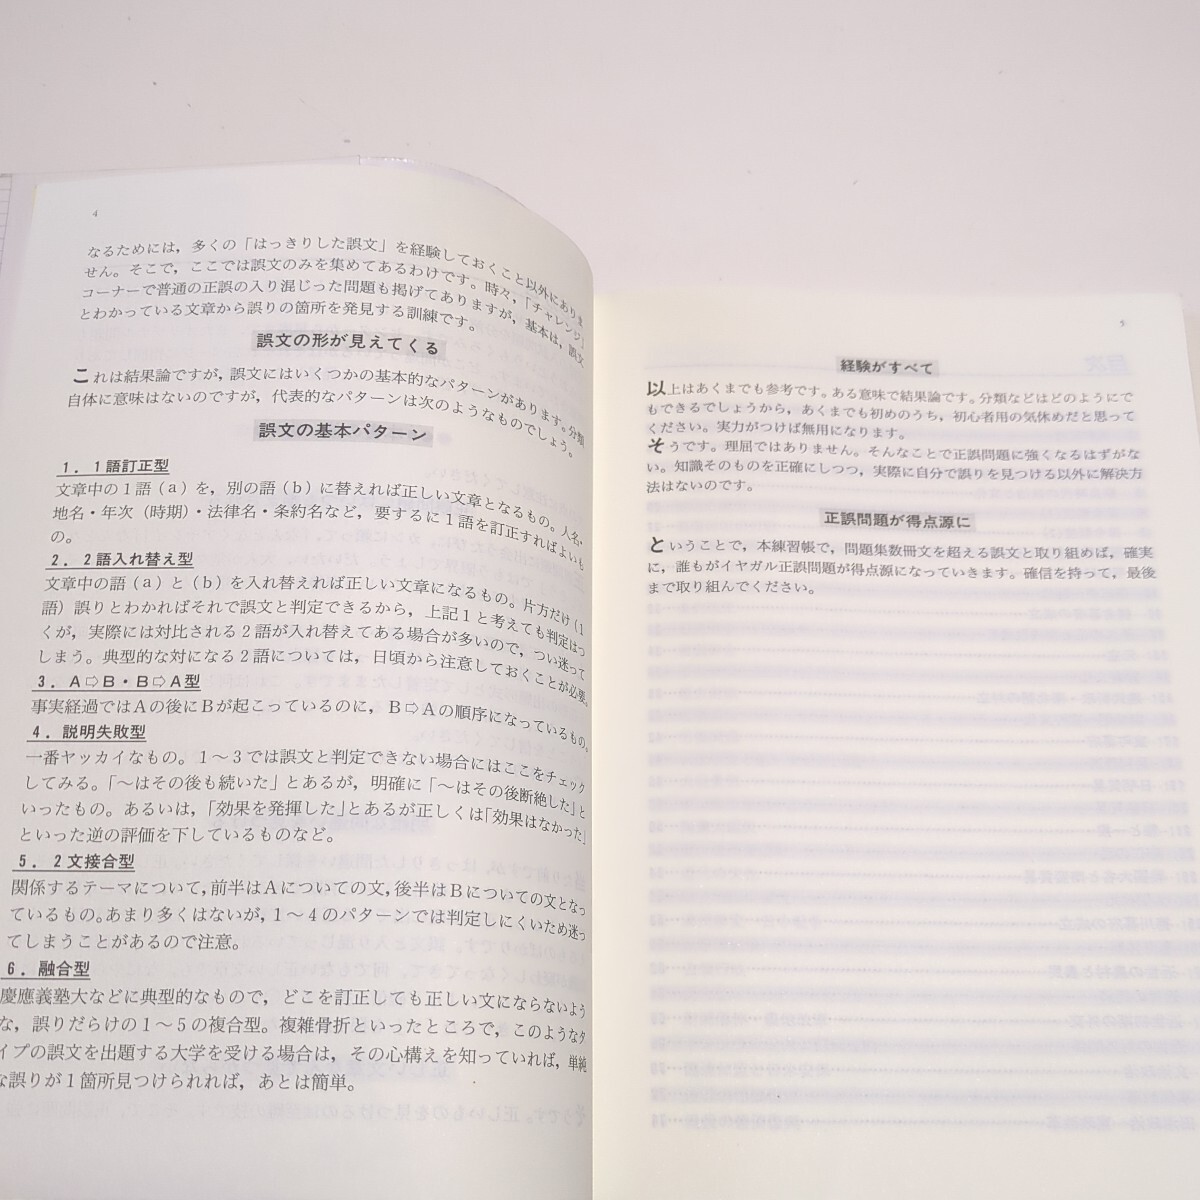 4
なるためには，多くの「はっきりした誤文」を経験しておくこと以外にありま
せん。そこで，ここでは誤文のみを集めてあるわけです。時々，「チャレンジ」
コーナーで普通の正誤の入り混じった問題も掲げてありますが，基本は，誤文
とわかっている文章から誤りの箇所を発見する訓練です。
誤文の形が見えてくる
これは結果論ですが，誤文にはいくつかの基本的なパターンがあります。分類
自体に意味はないのですが，代表的なパターンは次のようなものでしょう。
誤文の基本パターン
1．1語訂正型
文章中の1語（a）を，別の語（b）に替えれば正しい文章となるもの。人名・
地名・年次（時期）・法律名・条約名など，要するに1語を訂正すればよいも
の。
2．2語入れ替え型
文章中の語（a）と（b）を入れ替えれば正しい文章になるもの。片方だけ（1
語）誤りとわかればそれで誤文と判定できるから，上記1と考えても判定はつ
くが，実際には対比される2語が入れ替えてある場合が多いので，つい迷って
しまう。典型的な対になる2語については，日頃から注意しておくことが必要。
3．A⇨B・B⇨A型
事実経過ではAの後にBが起こっているのに，B⇨Aの順序になっているもの。
4．説明失敗型
一番ヤッカイなもの。1～3では誤文と判定できない場合にはここをチェック
してみる。「～はその後も続いた」とあるが，明確に「～はその後断絶した」と
いったもの。あるいは，「効果を発揮した」とあるが正しくは「効果はなかった」
といった逆の評価を下しているものなど。
5．2文接合型
関係するテーマについて，前半はAについての文，後半はBについての文となっ
ているもの。あまり多くはないが，1～4のパターンでは判定しにくいため迷っ
てしまうことがあるので注意。
6．融合型
慶應義塾大などに典型的なもので，どこを訂正しても正しい文にならないよう
な，誤りだらけの1～5の複合型。複雑骨折といったところで，このようなタ
イプの誤文を出題する大学を受ける場合は，その心構えを知っていれば，単純
な誤りが1箇所見つけられれば，あとは簡単。
5
経験がすべて
以上はあくまでも参考です。ある意味で結果論です。分類などはどのようにで
もできるでしょうから，あくまでも初めのうち，初心者用の気休めだと思って
ください。実力がつけば無用になります。
そうです。理屈ではありません。そんなことで正誤問題に強くなるはずがな
い。知識そのものを正確にしつつ，実際に自分で誤りを見つける以外に解決方
法はないのです。
正誤問題が得点源に
ということで，本練習帳で，問題集数冊文を超える誤文と取り組めば，確実
に，誰もがイヤガル正誤問題が得点源になっていきます。確信を持って，最後
まで取り組んでください。